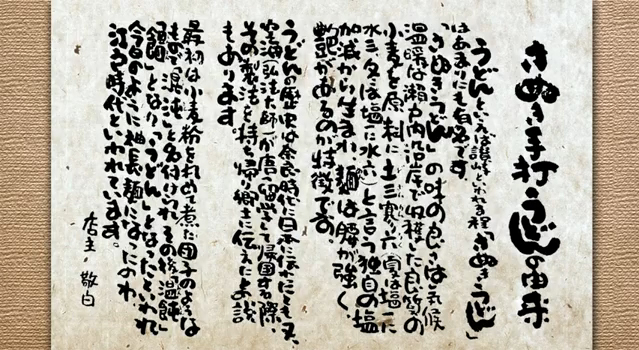 さぬき手打うどんの由来
うどんといえば讃岐といわれる程「さぬきうどん」
はあまりにも有名です。
「さぬきうどん」の味の良さは気候
温暖な瀬戸内沿岸で収穫した良質の
小麦を原料に土三寒六(夏は塩一に
水三、冬は塩一に水六)と言う独自の塩
加減から生まれ、麺は腰が強く、
艶があるのが特徴です。
うどんの歴史は奈良時代に日本に伝わったとも又、
空海(弘法大師)が唐に留学して帰国する際、
その製法を持ち帰り郷土に伝えたとの説
もあります。
最初は小麦粉を丸めて煮た団子のような
もので「混沌」と名付けられその後「温飩」
「饂飩」となり「うどん」となったといわれ
今日のように細長い麺になったのわ、
江戸時代といわれています。
店主・敬白